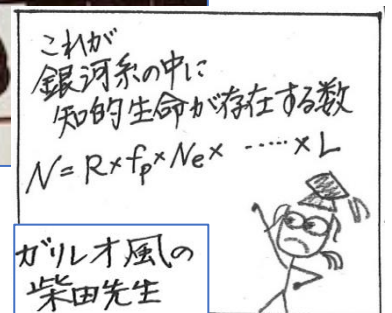 これが
銀河系の中に
知的生命が存在する数
N=R×fp×Ne× ‥‥‥ ×L
ガリレオ風の
柴田先生